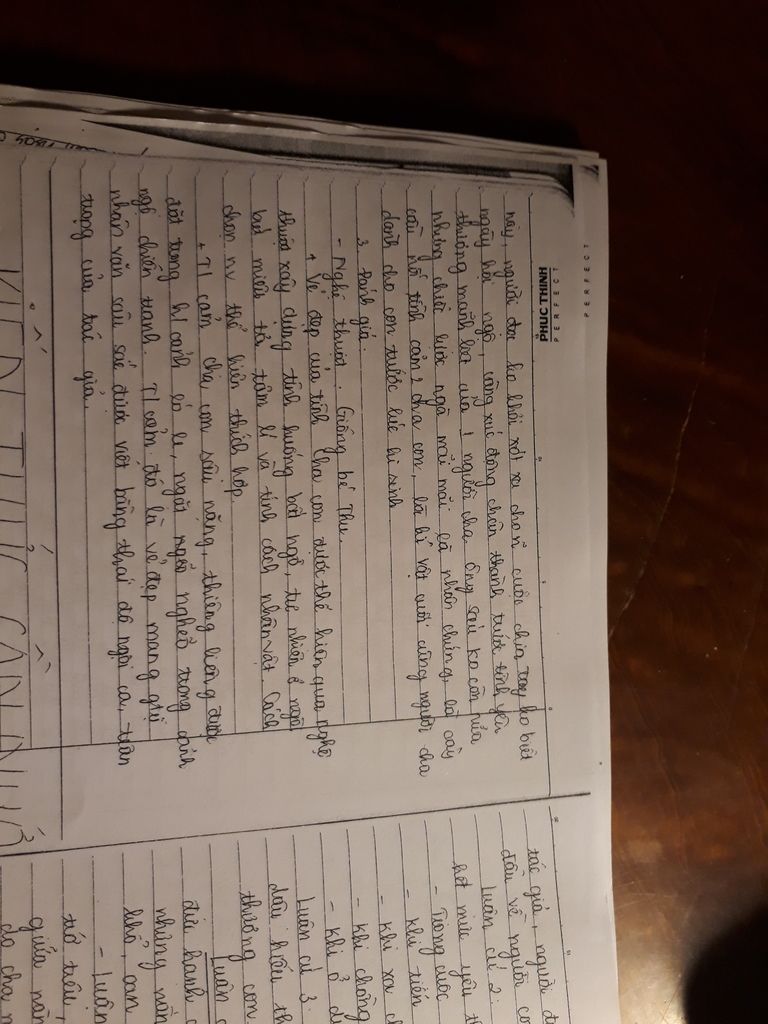 PERFECT
PERFECT
PHÚC THỊNH
này, người đọc ko khỏi xót xa cho n cuộc chia tay ko biết
ngày hội ngộ, cũng xúc động chân thành trước tình yêu
thương mãnh liệt của 1 người cha. Ông Sáu ko còn nữa
nhưng chiếc lược ngà mãi mãi là nhân chứng, là cây
cầu nối tình cảm 2 cha con, là kỉ vật cuối cùng người cha
dành cho con trước lúc hi sinh
3. Đánh giá.
- Nghệ thuật. Giống bé Thu.
+ Vẻ đẹp của tình cha con được thể hiện qua nghệ
thuật xây dựng tình huống bất ngờ, tự nhiên ở ngòi
bút miêu tả tâm lí và tính cách nhân vật. Cách
chọn nv thể hiện thích hợp.
+ T/cảm cha con sâu nặng, thiêng liêng được
đặt trong h/cảnh éo le, ngặt nghèo trong cảnh
ngộ chiến tranh. T/cảm đó là vẻ đẹp mang giá
nhân văn sâu sắc được viết bằng thái độ ngợi ca, trân
trọng của tác giả.
KIẾN THỨC CẦN NHỚ
tác giả, người đ
đầu về người co
Luận cứ 2:
hết mực yêu th
- Trong cuộc
- khi tiến
- Khi xa c
- Khi chồng
- Khi ở d
Luận cứ 3.
dấu hiếu th
thương con.
Luận c
đức hạnh c
những nă
khổ, oan
- Luận
tố tiêu,
giữa nă
do cha m